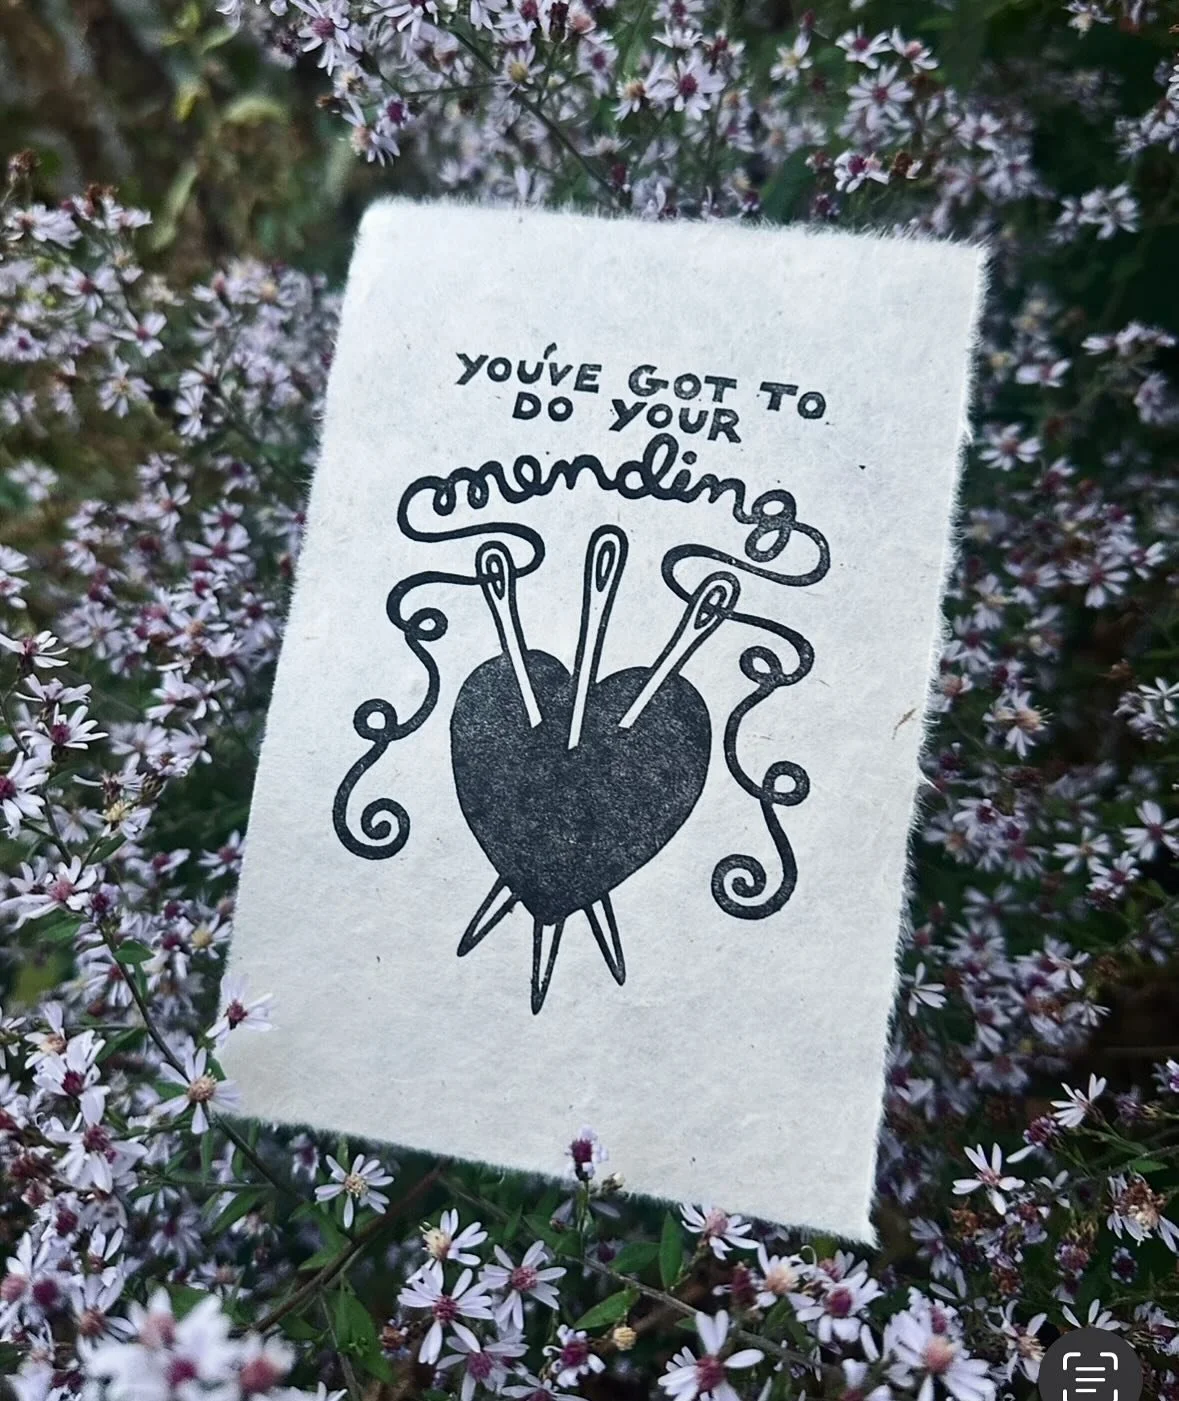 YOU'VE GOT TO
DO YOUR
mending